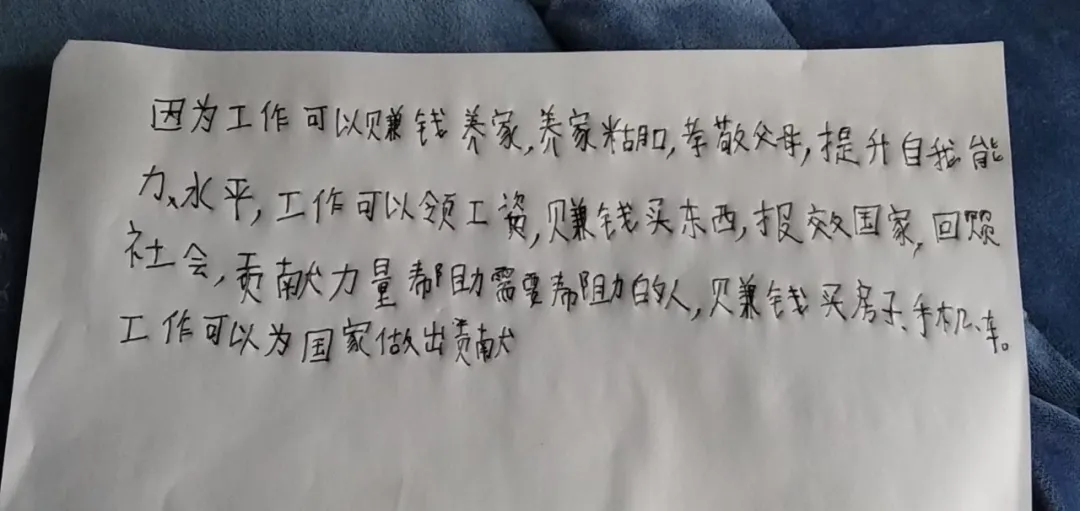 因为工作可以赚钱养家,养家糊口,孝敬父母,提升自我能
力、水平,工作可以领工资,赚钱买东西,报效国家,回馈
社会,贡献力量帮助需要帮助的人,赚钱买房子、手机、车。
工作可以为国家做出贡献